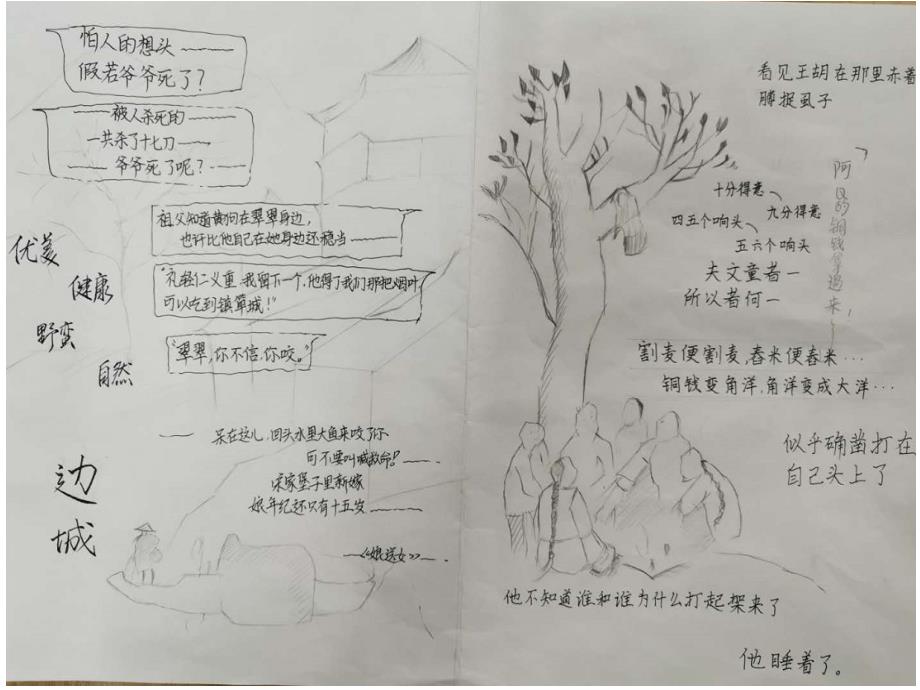 怕人的想头——
假若爷爷死了？
——被人杀死的——
一共杀了十七刀——
——爷爷死了呢？——
祖父知道黄狗在翠翠身边，
也许比他自己在她身边还稳当——
“礼轻仁义重，我留下一个，他得了我们那把烟叶
可以吃到镇筸城！”
“翠翠，你不信，你咬。”
优美
健康
野蛮
自然
——呆在这儿，回头水里大鱼来咬了你
可不要叫喊救命？——
宋家堡子里新嫁
娘年纪还只有十五岁——
——《娘送女》——
边
城
看见王胡在那里赤着
膊捉虱子
「阿Q的铜钱拿过来！」
十分得意
九分得意
四五个响头
五六个响头
夫文童者一
所以者何一
割麦便割麦，舂米便舂米…
铜钱变角洋，角洋变成大洋…
似乎确凿打在
自己头上了
他不知道谁和谁为什么打起架来了
他睡着了。